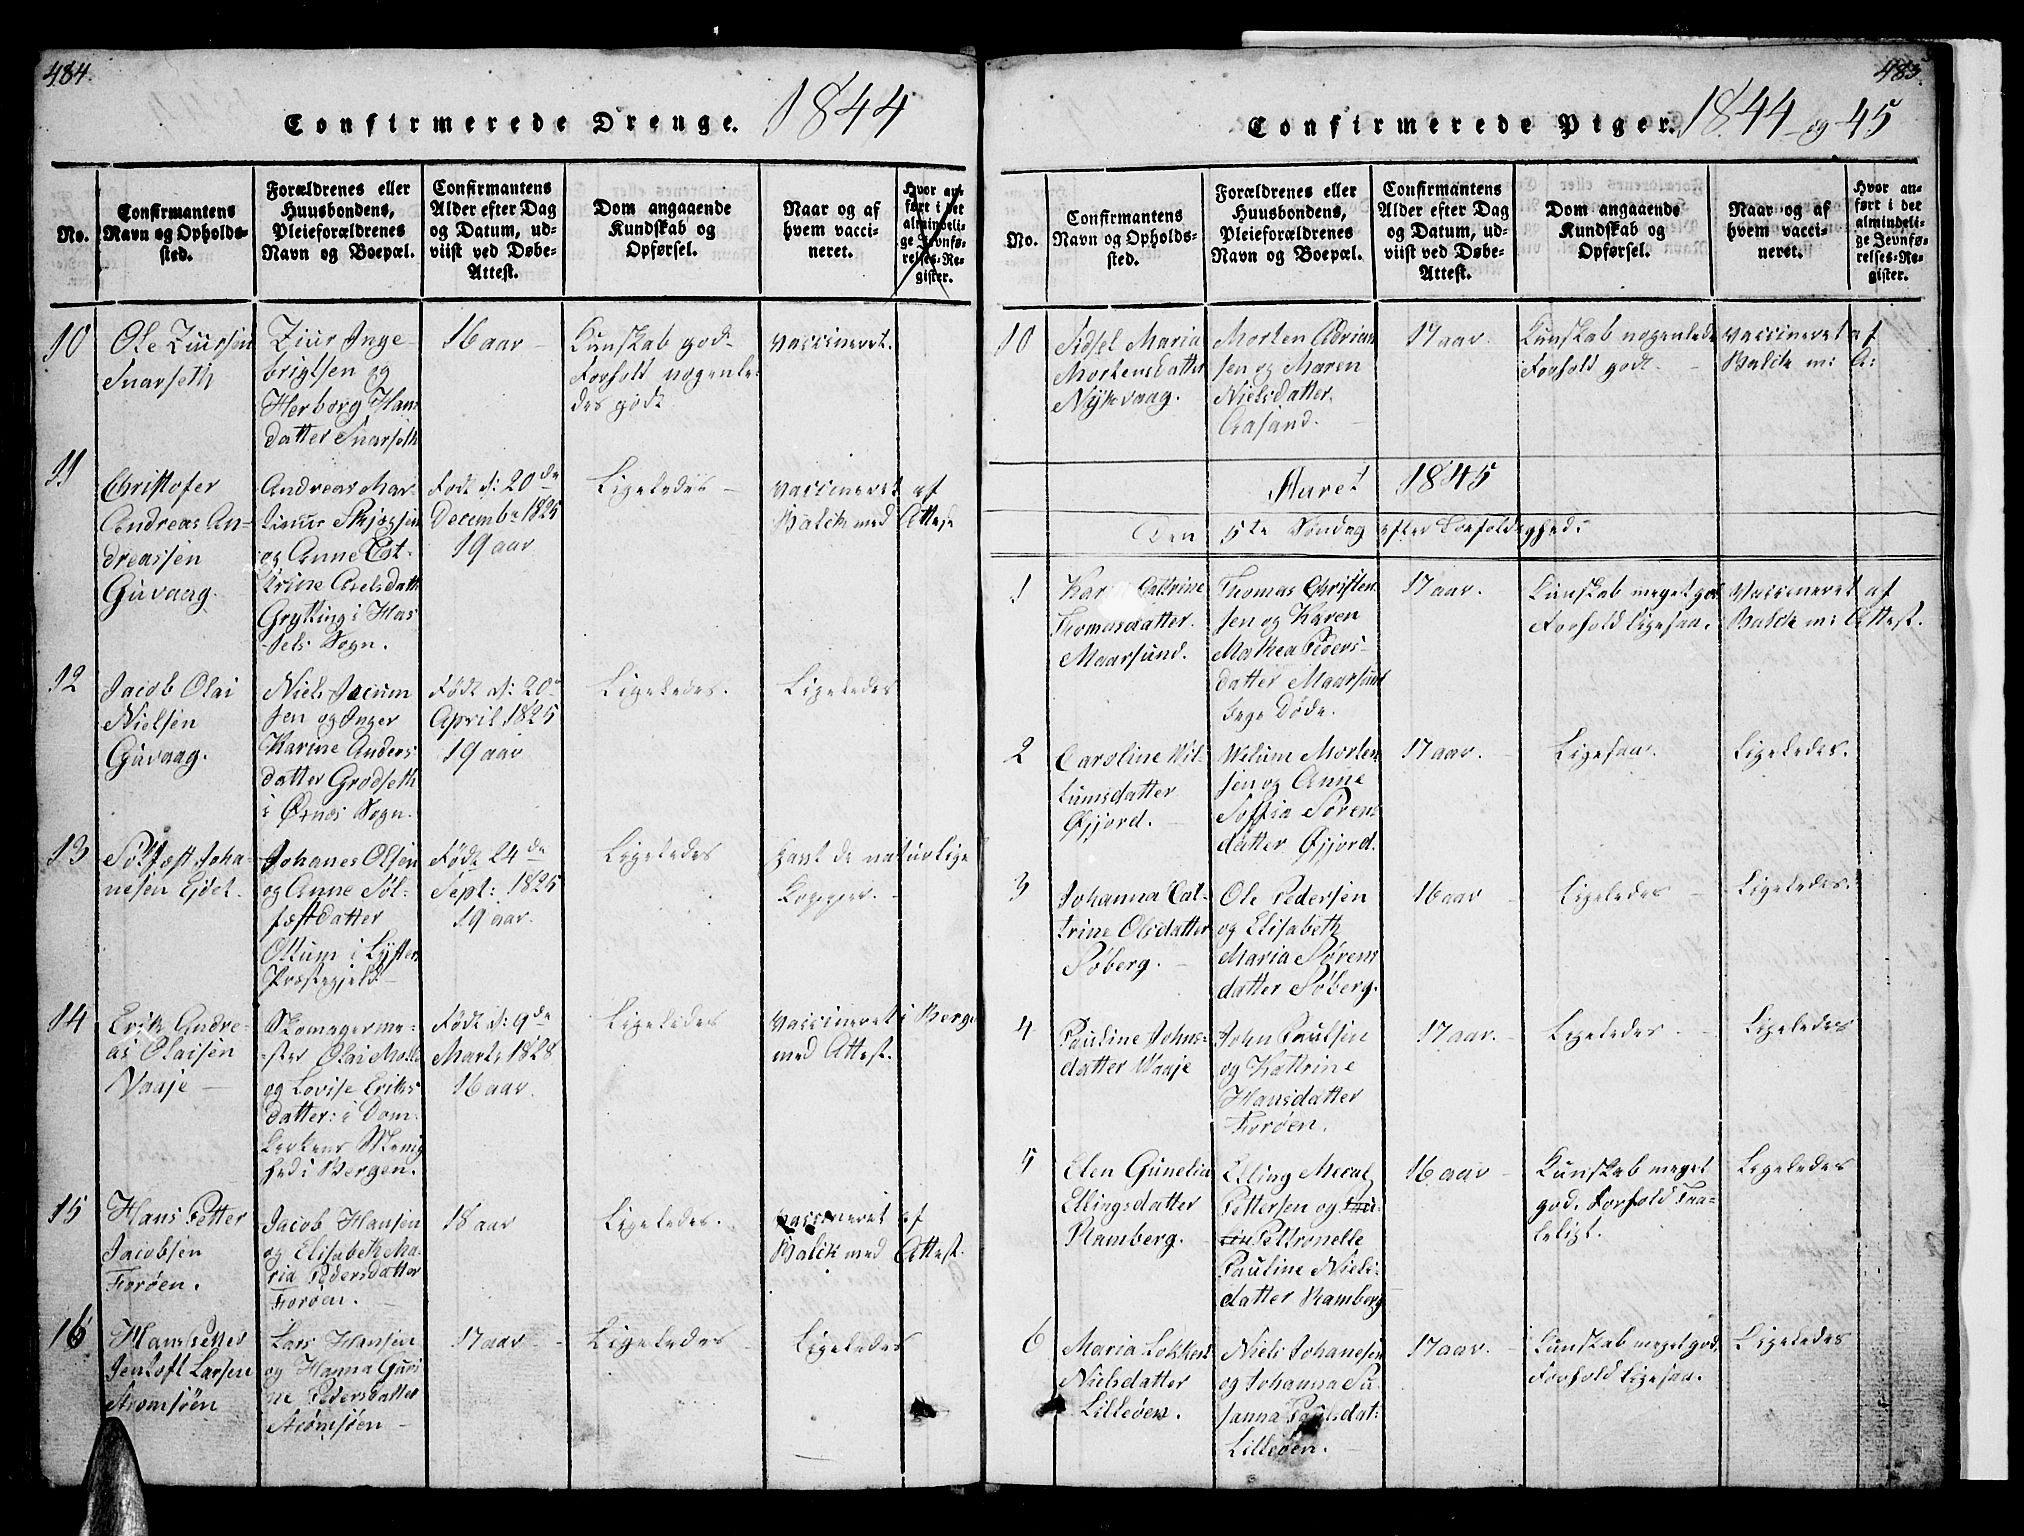 484.
Confirmerede Drenge. 1844
No.
Confirmantens
Navn og Opholds-
sted.
Forældrenes eller
Huusbondens,
Pleieforældrenes
Navn og Boepæl.
Confirmantens
Alder efter Dag
og Datum, ud-
viist ved Døbe-
Attest.
Dom angaaende
Kundskab og
Opførsel.
Naar og af
hvem vacci-
neret.
Hvor an-
ført i det
almindeli-
ge Jevnfø-
relses-Re-
gister.
10
Ole Ziursen
Snarseth
Ziur Inge-
brigtsen og
Herborg Hans
datter Snarseth
16 aar
Kunskab god
Forhold nogenle-
des godt
Vaccineret.
11
Christofer
Andreas An-
dreassen
Guvaag.
Andreas Mar-
og Anne Cat-
trine Axelsdatt
Grytting i Has-
sels Sogn.
Født d: 20de
Decembr 1825
19 aar
Ligeledes
Vaccineret af
Balck med Attest
12
Jacob Olai
Nielsen
Guvaag.
Niels Jocum
sen og Inger
Karine Anders
datter Grodseth
i Øsnes Sogn.
Født d: 20de
April 1825
19 aar
Ligeledes.
Ligeledes
13
Sølfæst Joha-
nesen Eidet
Johanes Olsen
og Anne Søl-
fæstdatter
Ottum i Lyster
Præstegjeld
Født 24de
Sept: 1825
19 aar.
Ligeledes
havt de naturlige
Kopper.
14
Erik Andre-
as Olaisen
Vaaje
Skomagerme-
ster Olai Molle
og Lovise Eriks
datter: i Dom-
kerkens Menig
hed i Bergen.
Født d: 9de
Marts 1828
16 aar.
Ligeledes
Vaccineret i Berge
med Attest.
15
Hans Petter
Jacobsen
Forøen.
Jacob Hansen
og Elisabeth Ma-
ria Pedersdatter
Forøen.
18 aar
Ligeledes.
Vaccineret af
Balck med Attest.
16
Hans Petter
Jentoft Larsen
Strømsöen
Lars Hansen
og Hanna Guri
ne Pedersdatter
Strømsöen
17 aar
Ligeledes
Ligeledes
485.
Confirmerede Piger. 1844 og 45
No.
Confirmantens
Navn og Opholds-
sted.
Forældrenes eller
Huusbondens,
Pleieforældrenes
Navn og Boepæl.
Confirmantens
Alder efter Dag
og Datum, ud-
viist ved Døbe-
Attest.
Dom angaaende
Kundskab og
Opførsel.
Naar og af
hvem vacci-
neret.
Hvor an-
ført i det
almindeli-
ge Jevnfø-
relses-Re-
gister.
10
Sidsel Maria
Mortensdatter
Nykvaag.
Morten Adrian
sen og Maren
Nielsdatter
Aasand.
17 aar.
Kunskab nogenlede
Forhold godt.
Vaccineret af
Balck m: A:
Aaret 1845
Den 5te Søndag efter Trefoldighed:
1
Karen Cattrine
Thomasdatter
Maarsund.
Thomas Christen
sen og Karen
Mathea Peders
datter Maarsund
bege Døde.
17 aar.
Kunskab meget god
Forhold ligesaa.
Vaccineret af
Balck m: Attest.
2
Caroline Wil-
lumsdatter
Øjjord.
Welum Morten
sen og Anne
Soffia Sørens
datter Øjjord.
17 aar.
Ligesaa.
Ligeledes.
3
Johanna Cat-
trine Olsdatter
Söberg.
Ole Pedersen
og Elisabeth
Maria Sörens
datter Söberg.
16 aar
Ligeledes
Ligeledes.
4
Pauline Johns-
datter Waaje
John Paulsen
og Kattrine
Hansdatter
Forøen.
17 aar.
Ligeledes
Ligeledes
5
Elen Gunelia
Ellingsdatter
Ramberg.
Elling Meral
Pettersen og
Pettronelle
Pauline Niels-
datter Ramberg
16 aar
Kunskab meget
god. Forhold Taa-
leligt.
Ligeledes
6
Maria Lokken
Nielsdatter
Lilleøen.
Niels Johanesen
og Johanna Su-
sanna Paulsdat:
Lilleøen.
17 aar.
Kunskab meget god
Forhold ligesaa.
Ligeledes